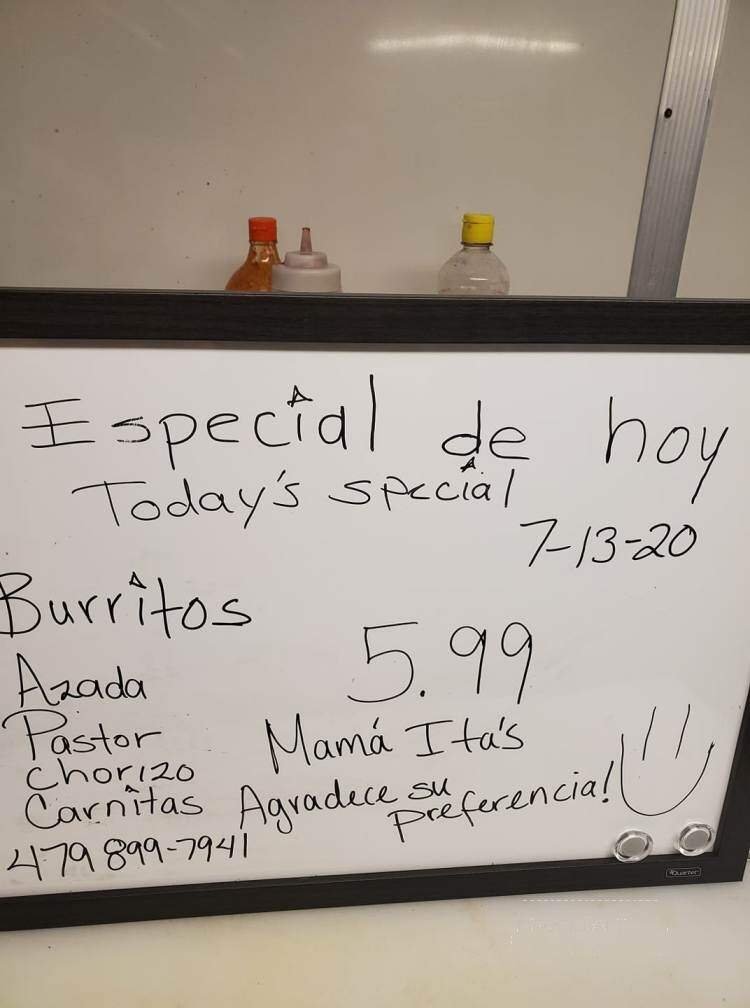 Especial de hoy
Today's special
7-13-20
Burritos
5.99
Azada
Pastor
chorizo
Carnitas
Mamá Ita's
Agradece su preferencia!
479 899-7941
Quartet